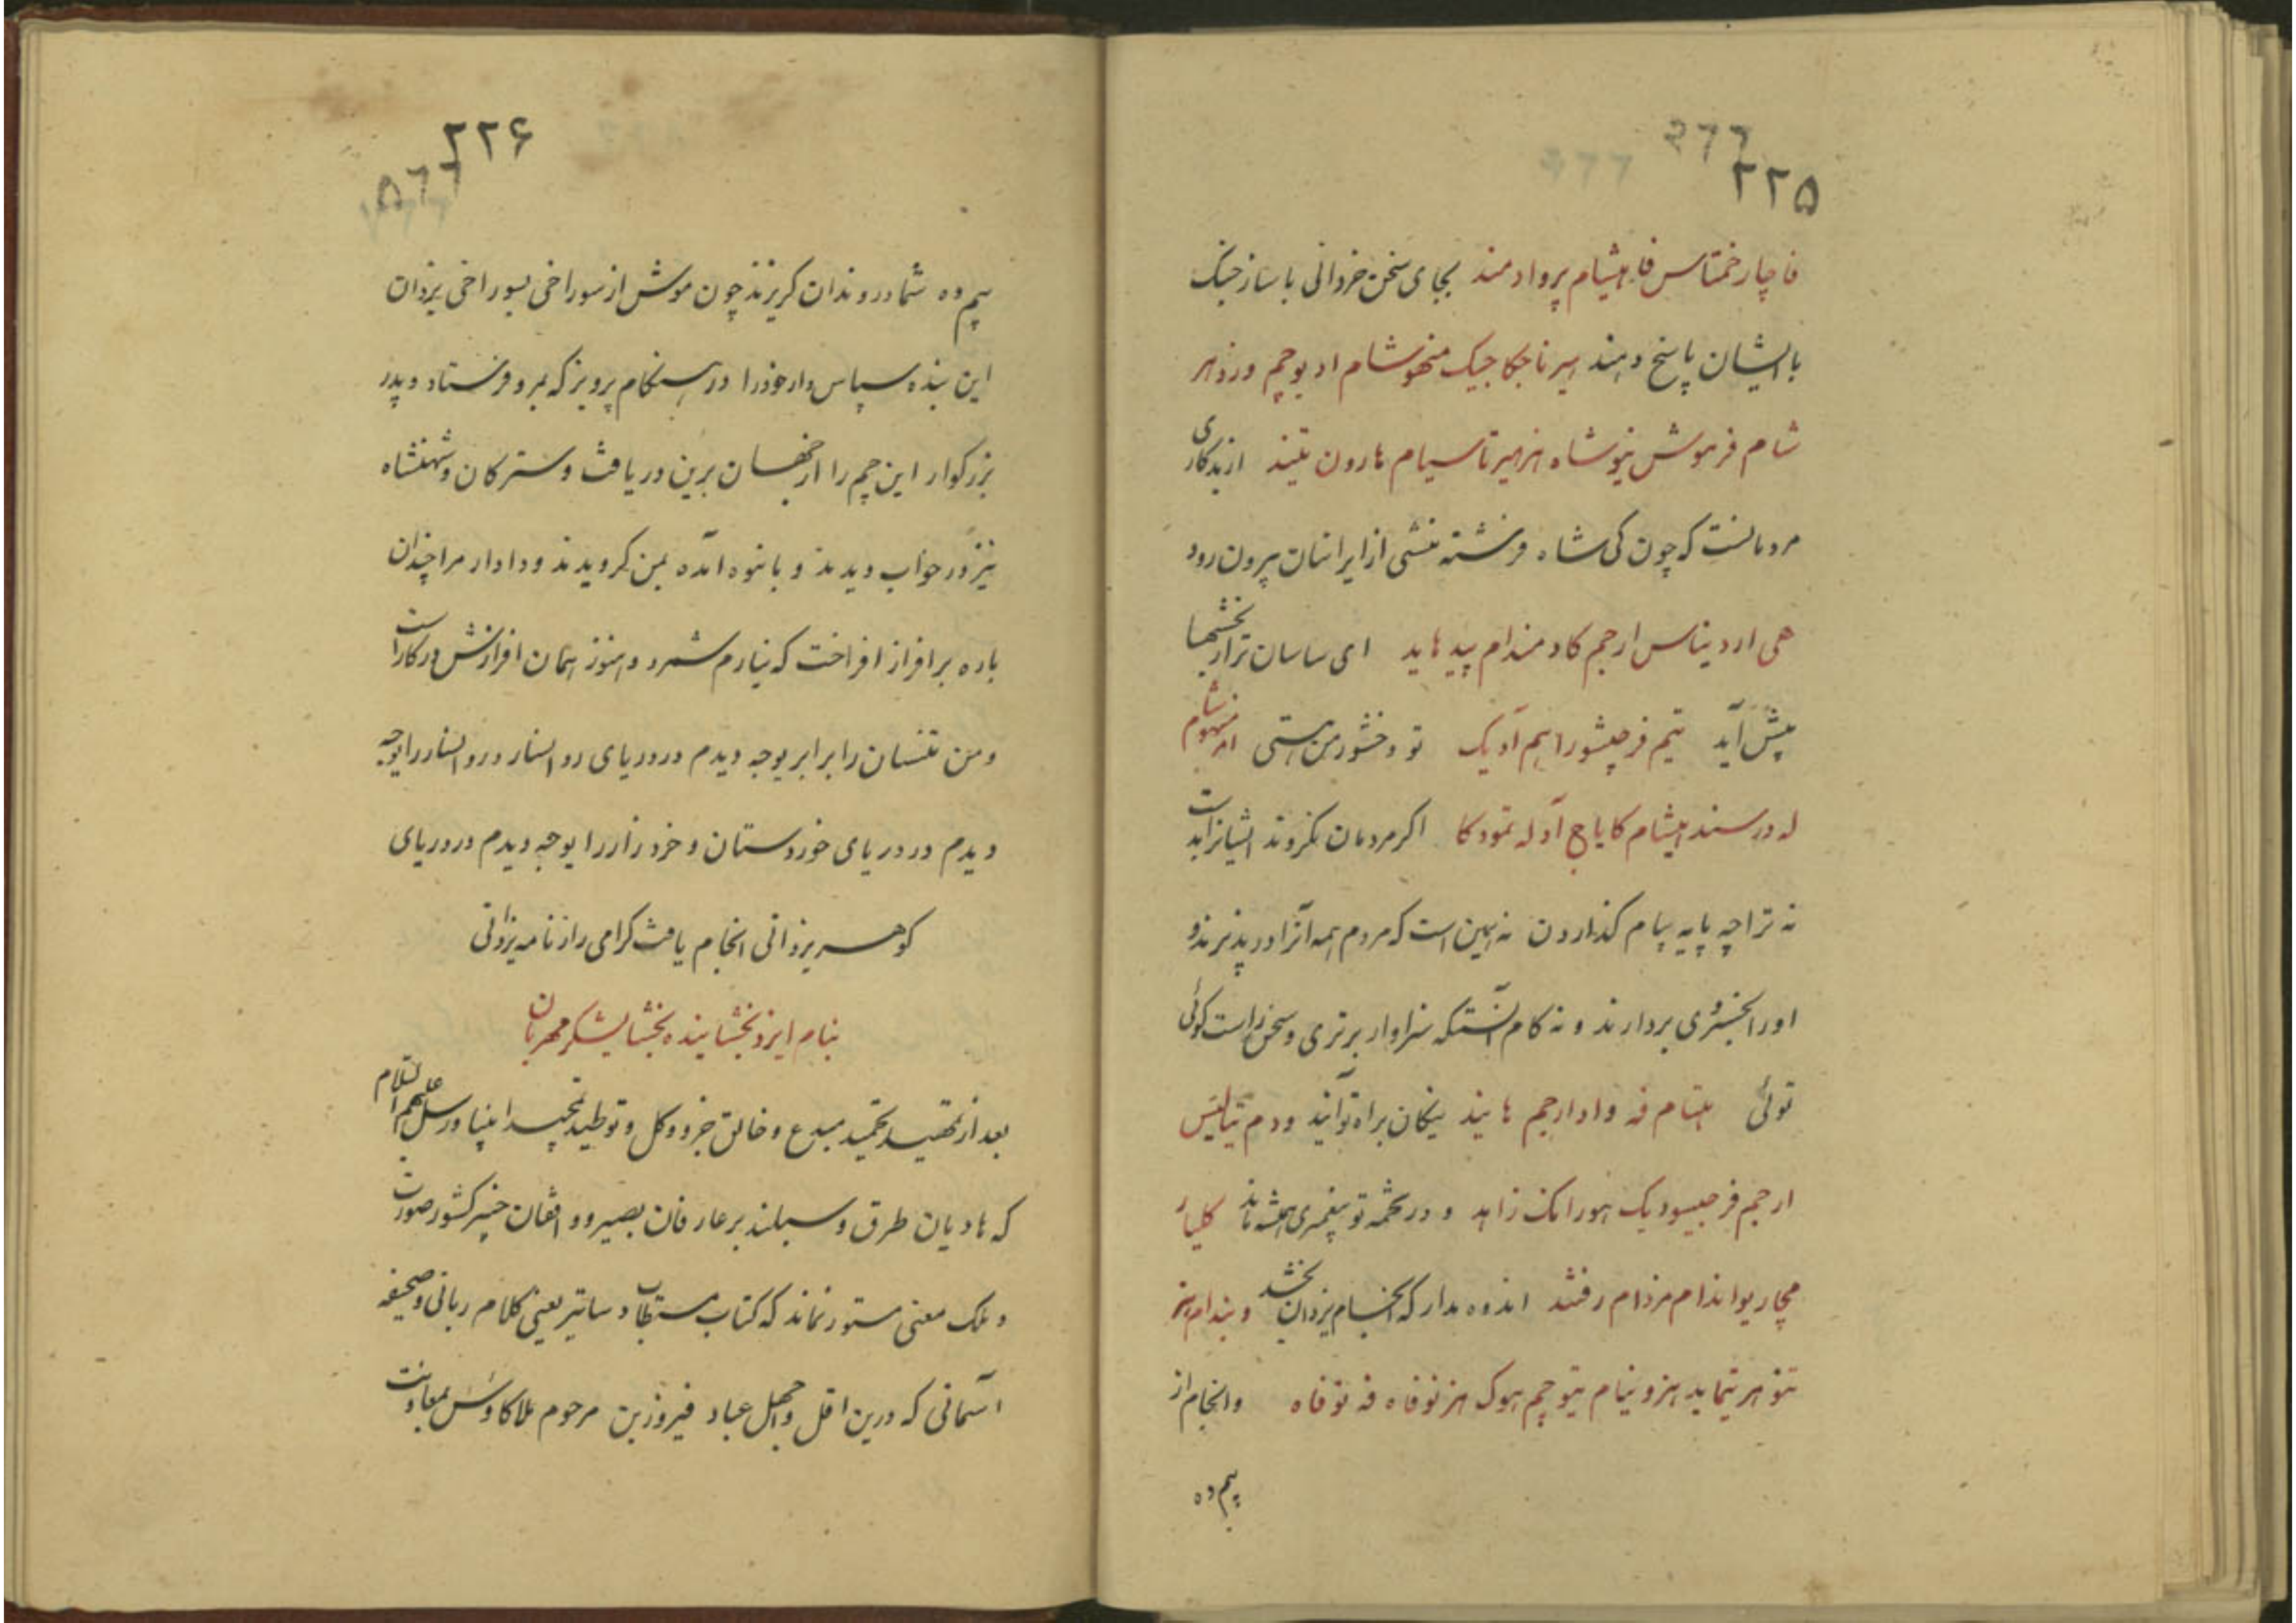 ۲۲۵
فاچار ختماس فا هیشام پروادمند بجای سخن خردانی با ساز جنگ
با ایشان پاسخ دهند هیرناجکاجیک منهوشام اد یوچم ورذهر
شام فرهوش نیوشاه هزهیر تاسیام هارون تیند از بدکاری
مردمانست که چون کی شاه فرشته منشی از ایرانیان بیرون رود
هی اردیناس ارجم کاد مندام پید هاید ای ساسان ترا رنجشها
پیش آید تیم فرجیشور اهم آدیک تو وخشور من هستی ار منهوشام
له درسند هیشام کایاج آد له تمود کا اگر مردمان نگروند ایشانرا بد است
نه ترا چه پایه پیام گذاردن نه بهین است که مردم همه آنرا در پذیرند و
او را بخسروی بردارند و نه کام آنستکه سزاوار برتری و سخن راست گوئی
توئی هشام فه وادارجم هایند نیکان براه تو آیند ودم تیالیس
ارجم فرجیسودیک هورامک زاهد و در تخمه تو پیغمبری همیشه ماند کلیار
مجار یواندام مزدام رفشد اندوه مدار که انجام یزدان بخشد وبندام هز
تنو هر یتماید هزو ینام یتو چم هوک هز نوفاه فه نوفاه وانجام از
بیم ده
۲۲۶
بیم ده شما دروندان گریزند چون موش از سوراخی بسوراخی یزدان
این بنده سپاس دار خود را در هنگام پرویز که بمرو فرستاد و پدر
بزرگوار این چم را از جهان برین دریافت و سترگان و شهنشاه
نیز در خواب دیدند و بانبوه آمده بمن گرویدند و دادار مرا چندان
باره بر افراز افراخت که نیارم شمرد و هنوز همان افرازش در کار است
و من تنسان را برابر یوجه دیدم در دریای روانسار و روانسار را یوجه
دیدم در دریای خوروستان و خرد زار را یوجه دیدم در دریای
گوهر یزدانی انجام یافت گرامی راز نامه یزدانی
بنام ایزد بخشاینده بخشایشگر مهربان
بعد از تمهید تحمید مبدع و خالق جزو و کل و توطید تمجید انبیا و رسل علیهم السلام
که هادیان طرق و سبلند بر عارفان بصیر و واقفان خبیر کشور صورت
و ملک معنی مستور نماند که کتاب مستطاب دساتیر یعنی کلام ربانی و صحیفه
آسمانی که درین اقل و اجهل عباد فیروز بن مرحوم ملا کاوس بمعاونت